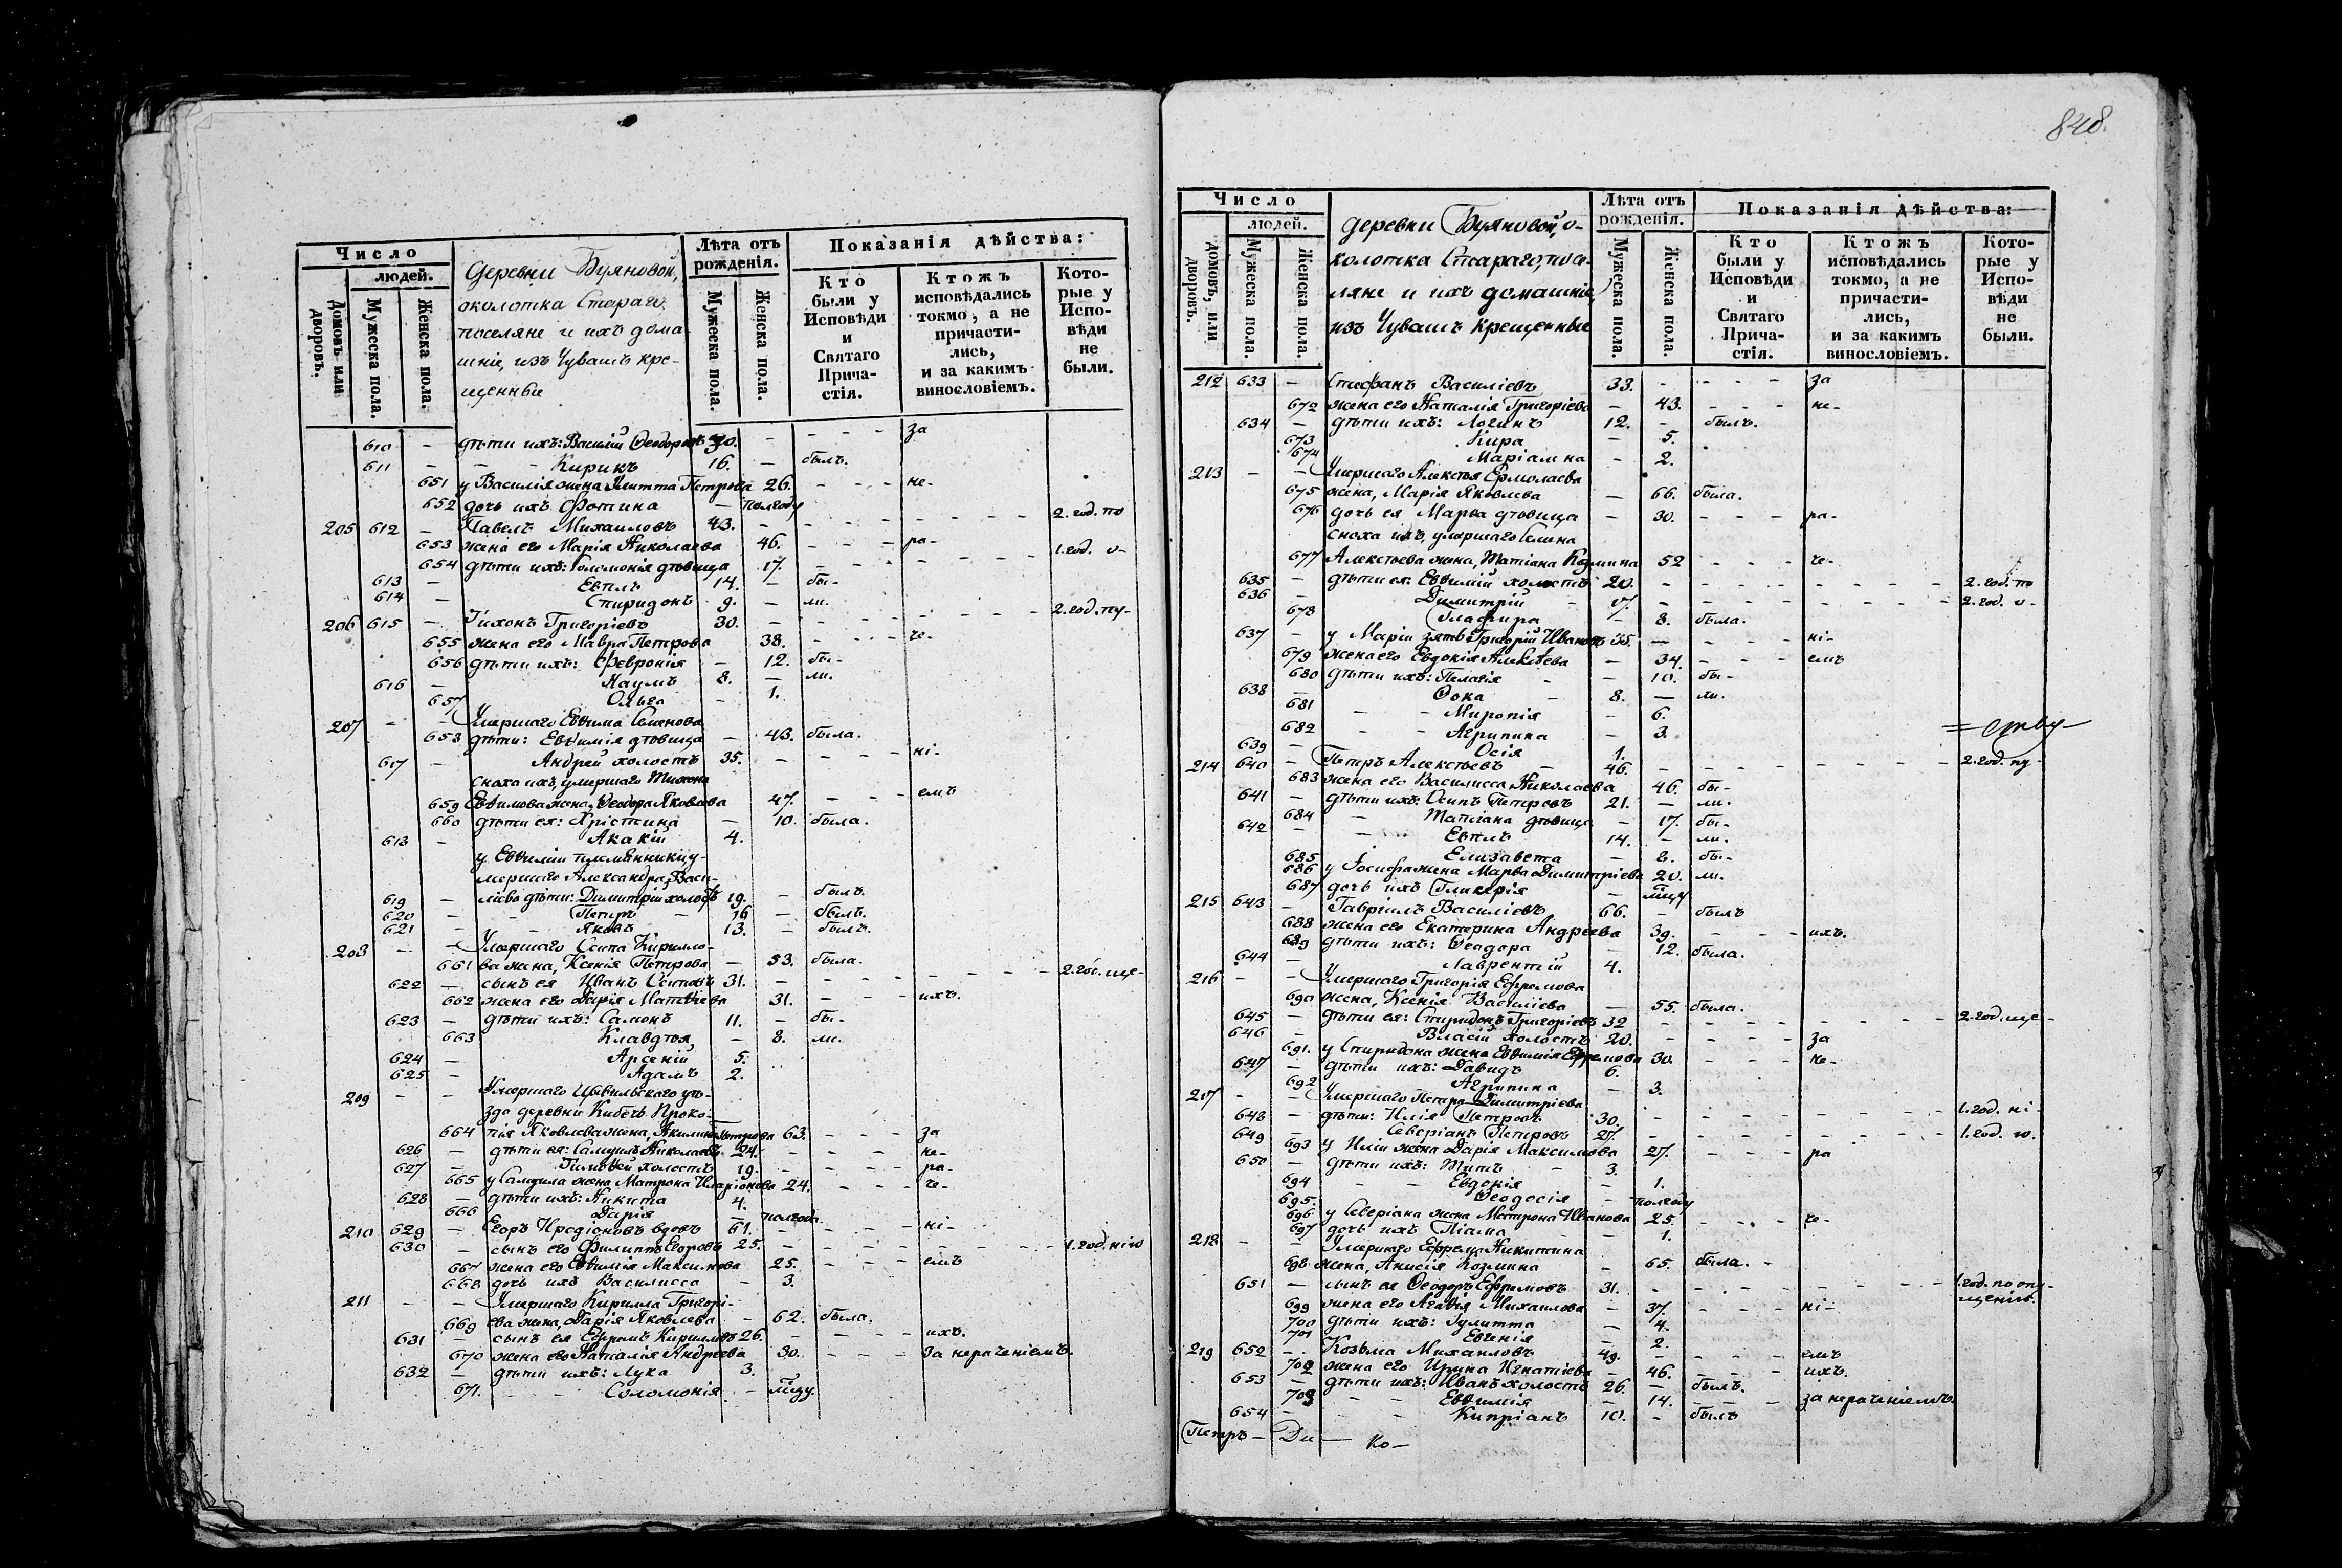 Число
людей.
Домовъ или дворовъ.
Мужеска пола.
Женска пола.
Деревни Буяновой,
околотка Стараго,
поселяне и ихъ дома-
шніе, изъ Чувашъ кре-
щенные
Лѣта отъ рожденія.
Мужеска пола.
Женска пола.
Показанія дѣйства:
Кто были у Исповѣди и Святаго Причастія.
Ктожъ исповѣдались токмо, а не причастились, и за какимъ винословіемъ.
Которые у Исповѣди не были.
610 — дѣти ихъ: Василій Ѳеодоровъ 30. - - - - за
611 — — - Кирикъ 16. — былъ.
651 у Василія жена Улитта Петрова 26. - - - не-
652 дочь ихъ Фотина — полгоду
205 612 — Павелъ Михаиловъ 43. - - - - - - - 2. год. по
653 жена его Марія Николаева 46. - - - ра-
654 дѣти ихъ: Соломонія дѣвица 17. - - - - - - 1. год. о-
613 — Евплъ 14. — бы-
614 — Спиридонъ 9. — ли.
206 615 — Тихонъ Григоріевъ 30. — - - - - - - 2. год. пу-
655 жена его Мавра Петрова 38. - - - че-
656 дѣти ихъ: Февронія — 12. бы-
616 — Наумъ 8. — ли.
657 Ольга - 1.
207 - - Умершаго Евѳима Семенова
658 дѣти: Евѳимія дѣвица — 43. была.
617 — Андрей холостъ 35. - - - ні-
сноха ихъ, умершаго Тихона
659 Евѳимова жена, Ѳеодора Яковлева 47. - - - емъ
660 дѣти ея: Христина — 10. была.
618 - Акакій 4.
у Евѳиміи племянники, у-
мершаго Александра Васи-
619 — ліева дѣти: Димитрій холостъ 19. - былъ.
620 — - Петръ — 16 — былъ.
621 — - Яковъ 13. — былъ.
208 - - Умершаго Осипа Кирилло-
661 ва жена, Ксенія Петрова — 53. была.
622 — сынъ ея Иванъ Осиповъ 31. - - - - - - 2. год. ще-
662 жена его Дарія Матвѣева 31. - - - ихъ.
623 — дѣти ихъ: Самонъ 11. - бы-
663 Клавдія, — 8. ли.
624 — Арсеній 5.
625 — Адамъ 2.
209 - - Умершаго Цывильскаго уѣ-
зда деревни Кибечь Проко-
664 пія Яковлева жена, Акилина Петрова 63. - - - за
626 — дѣти ея: Самуилъ Николаевъ 24. - - - - не-
627 — Тимоѳей холостъ 19. - - - - ра-
665 у Самуила жена Матрона Иларіонова 24. - - - че-
628 — дѣти ихъ: Никита 4.
666 Дарія — полгода
210 629 — Егоръ Иродіоновъ вдовъ 61. — - - - ні-
630 — сынъ его Филиппъ Егоровъ 25. - - - - - - 1. год. нію
667 жена его Евѳимія Максимова 25. - - - емъ
668 дочь ихъ Василисса - 3.
211 - - Умершаго Кирилла Григорі-
669 ева жена, Дарія Яковлева — 62. была.
631 — сынъ ея Ефремъ Кирилловъ 26. - - - - ихъ.
670 жена его Наталія Андреева 30. - - - за нераченіемъ.
632 — дѣти ихъ: Лука 3.
671. - - Соломонія - мѣцу.
848.
Число
людей.
домовъ, или дворовъ.
Мужеска пола.
Женска пола.
деревни Буяновой, о-
колотка Стараго, посе-
ляне и ихъ домашніе,
изъ Чувашъ крещенные
Лѣта отъ рожденія.
Мужеска пола.
Женска пола.
Показанія дѣйства:
Кто были у Исповѣди и Святаго Причастія.
Ктожъ исповѣдались токмо, а не причастились, и за какимъ винословіемъ.
Которые у Исповѣди не были.
212 633 — Стефанъ Василіевъ 33. - - - - за
672 жена его Наталія Григоріева — 43. - - - не-
634 — дѣти ихъ: Логинъ 12. - былъ.
673 Кира — 5.
674 Маріамна - 2.
213 — — Умершаго Алексѣя Ермолаева
675 жена, Марія Яковлева — 66. была.
676 дочь ея Марѳа дѣвица — 30. - - - ра-
сноха ихъ, умершаго Семена
677 Алексѣева жена, Татіана Козмина 52 - - - че-
635 — дѣти ея: Евѳимій холостъ 20. - - - - - - 2. год. по
636 — Димитрій - 17. - - - - - - 2. год. о-
678 Глафира - 8. была.
637 — у Маріи зять Григорій Ивановъ 35. — - - - ні-
679 жена его Евдокія Алексѣева — 34. - - - емъ
680 дѣти ихъ: Пелагія - — 10. бы-
638 — Ѳока - 8. — ли.
681 - - Миропія — 6.
682 - - Агрипина — 3.
639 — Осія 1.
214 640 — Петръ Алексѣевъ — 46. - - - - - - 2. год. пу-
683 жена его Василисса Николаева 46. бы-
641 — дѣти ихъ: Осипъ Петровъ 21. — ли.
684 — Татіана дѣвица — 17. бы-
642 — - Евплъ 14. — ли.
685 Елизавета — 2. бы-
686 у Іосифа жена Марѳа Димитріева 20. ли.
687 дочь ихъ Гликерія — мѣцу
215 643 — Гавріилъ Василіевъ 66. - былъ
688 жена его Екатерина Андреева 39. - - - ихъ.
689 дѣти ихъ: Ѳеодора — 12. была.
644 — Лаврентій 4.
216 — — Умершаго Григорія Ефремова
690 жена, Ксенія Василіева — 55. была.
645 — дѣти ея: Спиридонъ Григоріевъ 32 - - - - - - 2. год. ще-
646 — Власій холостъ 20. - - - - за
691. у Спиридона жена Евѳимія Ефремова 30. - - - не-
647 — дѣти ихъ: Давидъ 6.
692 Агрипина — 3.
217 - — Умершаго Петра Димитріева
648 — дѣти: Илія Петровъ 30. - - - - - - 1. год. ні-
649 — Северіанъ Петровъ 27. - - - - - - 1. год. ю.
693 у Иліи жена Дарія Максимова 27. - - - ра
650 — дѣти ихъ: Титъ - 3.
694 - - Евдокія — 1.
695. Ѳеодосія — полгоду
696 у Северіана жена Матрона Иванова 25. - - - че-
697 дочь ихъ Піама - — 1.
218 - — Умершаго Ефрема Никитина
698 жена, Анисія Козмина - 65. была. -
651 — сынъ ея Ѳеодоръ Ефремовъ 31. - - - - - - 1. год. по опу-
щенію.
699 жена его Агаѳія Михаилова — 37. - - - ні-
700 дѣти ихъ: Іулитта — 4.
701 Евгенія — 2.
219 652 - - Козьма Михаиловъ 49. - - - - емъ
702 жена его Ирина Игнатіева — 46. - - - ихъ.
653 — дѣти ихъ: Иванъ холостъ 26. — былъ.
703 - - Евѳимія — 14. - - - за нераченіемъ.
654 — - Кипріанъ 10. - былъ
Петръ — Ди — Ко —